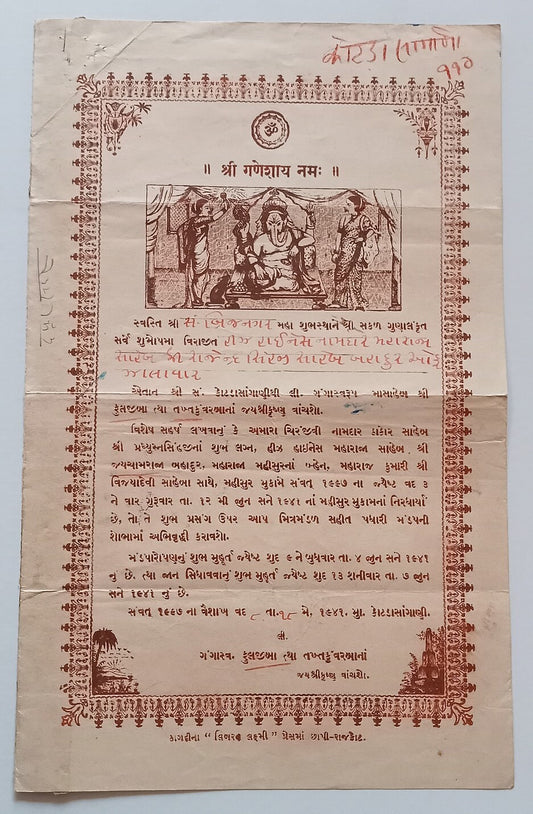 કોટડા સાંગાણી
૧૧૦
ॐ
॥ श्री गणेशाय नमः ॥
સ્વસ્તિ શ્રી સં. બ્રિજનગર મહા શુભસ્થાને શ્રી સકળ ગુણાલંકૃત
સર્વે શુભોપમા વિરાજીત હીઝ હાઈનેસ નામદાર મહારાજા
સાહેબ શ્રી રાજેન્દ્ર સિંહજી સાહેબ બહાદુર ઓફ
ઝાલાવાર
એતાન શ્રી સં. કોટડાસાંગાણીથી લી. ગંગાસ્વરૂપ માસાહેબ શ્રી
કુલજીબા ત્થા તખ્તકુંવરબાનાં જયશ્રીકૃષ્ણ વાંચશો.
વિશેષ સહર્ષ લખવાનું કે અમારા ચિરંજીવી નામદાર ઠાકોર સાહેબ
શ્રી પ્રધ્યુમ્નસિંહજીનાં શુભ લગ્ન, હીઝ હાઇનેસ મહારાજા સાહેબ શ્રી
જયચામરાજા બહાદુર, મહારાજા મહીસુરનાં બ્હેન, મહારાજ કુમારી શ્રી
વિજયાદેવી સાહેબા સાથે, મહીસુર મુકામે સંવત્ ૧૯૯૭ ના જ્યેષ્ટ વદ ૩
ને વાર ગુરૂવાર તા. ૧૨ મી જુન સને ૧૯૪૧ નાં મહીસુર મુકામનાં નિરધાર્યાં
છે, તો તે શુભ પ્રસંગ ઉપર આપ મિત્રમંડળ સહીત પધારી મંડપની
શોભામાં અભિવૃદ્ધી કરાવશો.
મંડપારોપણનું શુભ મુહૂર્ત જ્યેષ્ટ શુદ ૯ ને બુધવાર તા. ૪ જુન સને ૧૯૪૧
નું છે. ત્યા જાન સિધાવવાનું શુભ મુહૂર્ત જ્યેષ્ટ શુદ ૧૩ શનીવાર તા. ૭ જુન
સને ૧૯૪૧ નું છે.
સંવત્ ૧૯૯૭ ના વૈશાખ વદ ૮ તા. ૧૮ મે, ૧૯૪૧. મુ. કોટડાસાંગાણી.
લી.
ગંગાસ્વ. કુલજીબા ત્થા તખ્તકુંવરબાનાં
જયશ્રીકૃષ્ણ વાંચશો.
કાગદીના “ વિજય લક્ષ્મી ” પ્રેસમાં છાપી-રાજકોટ.